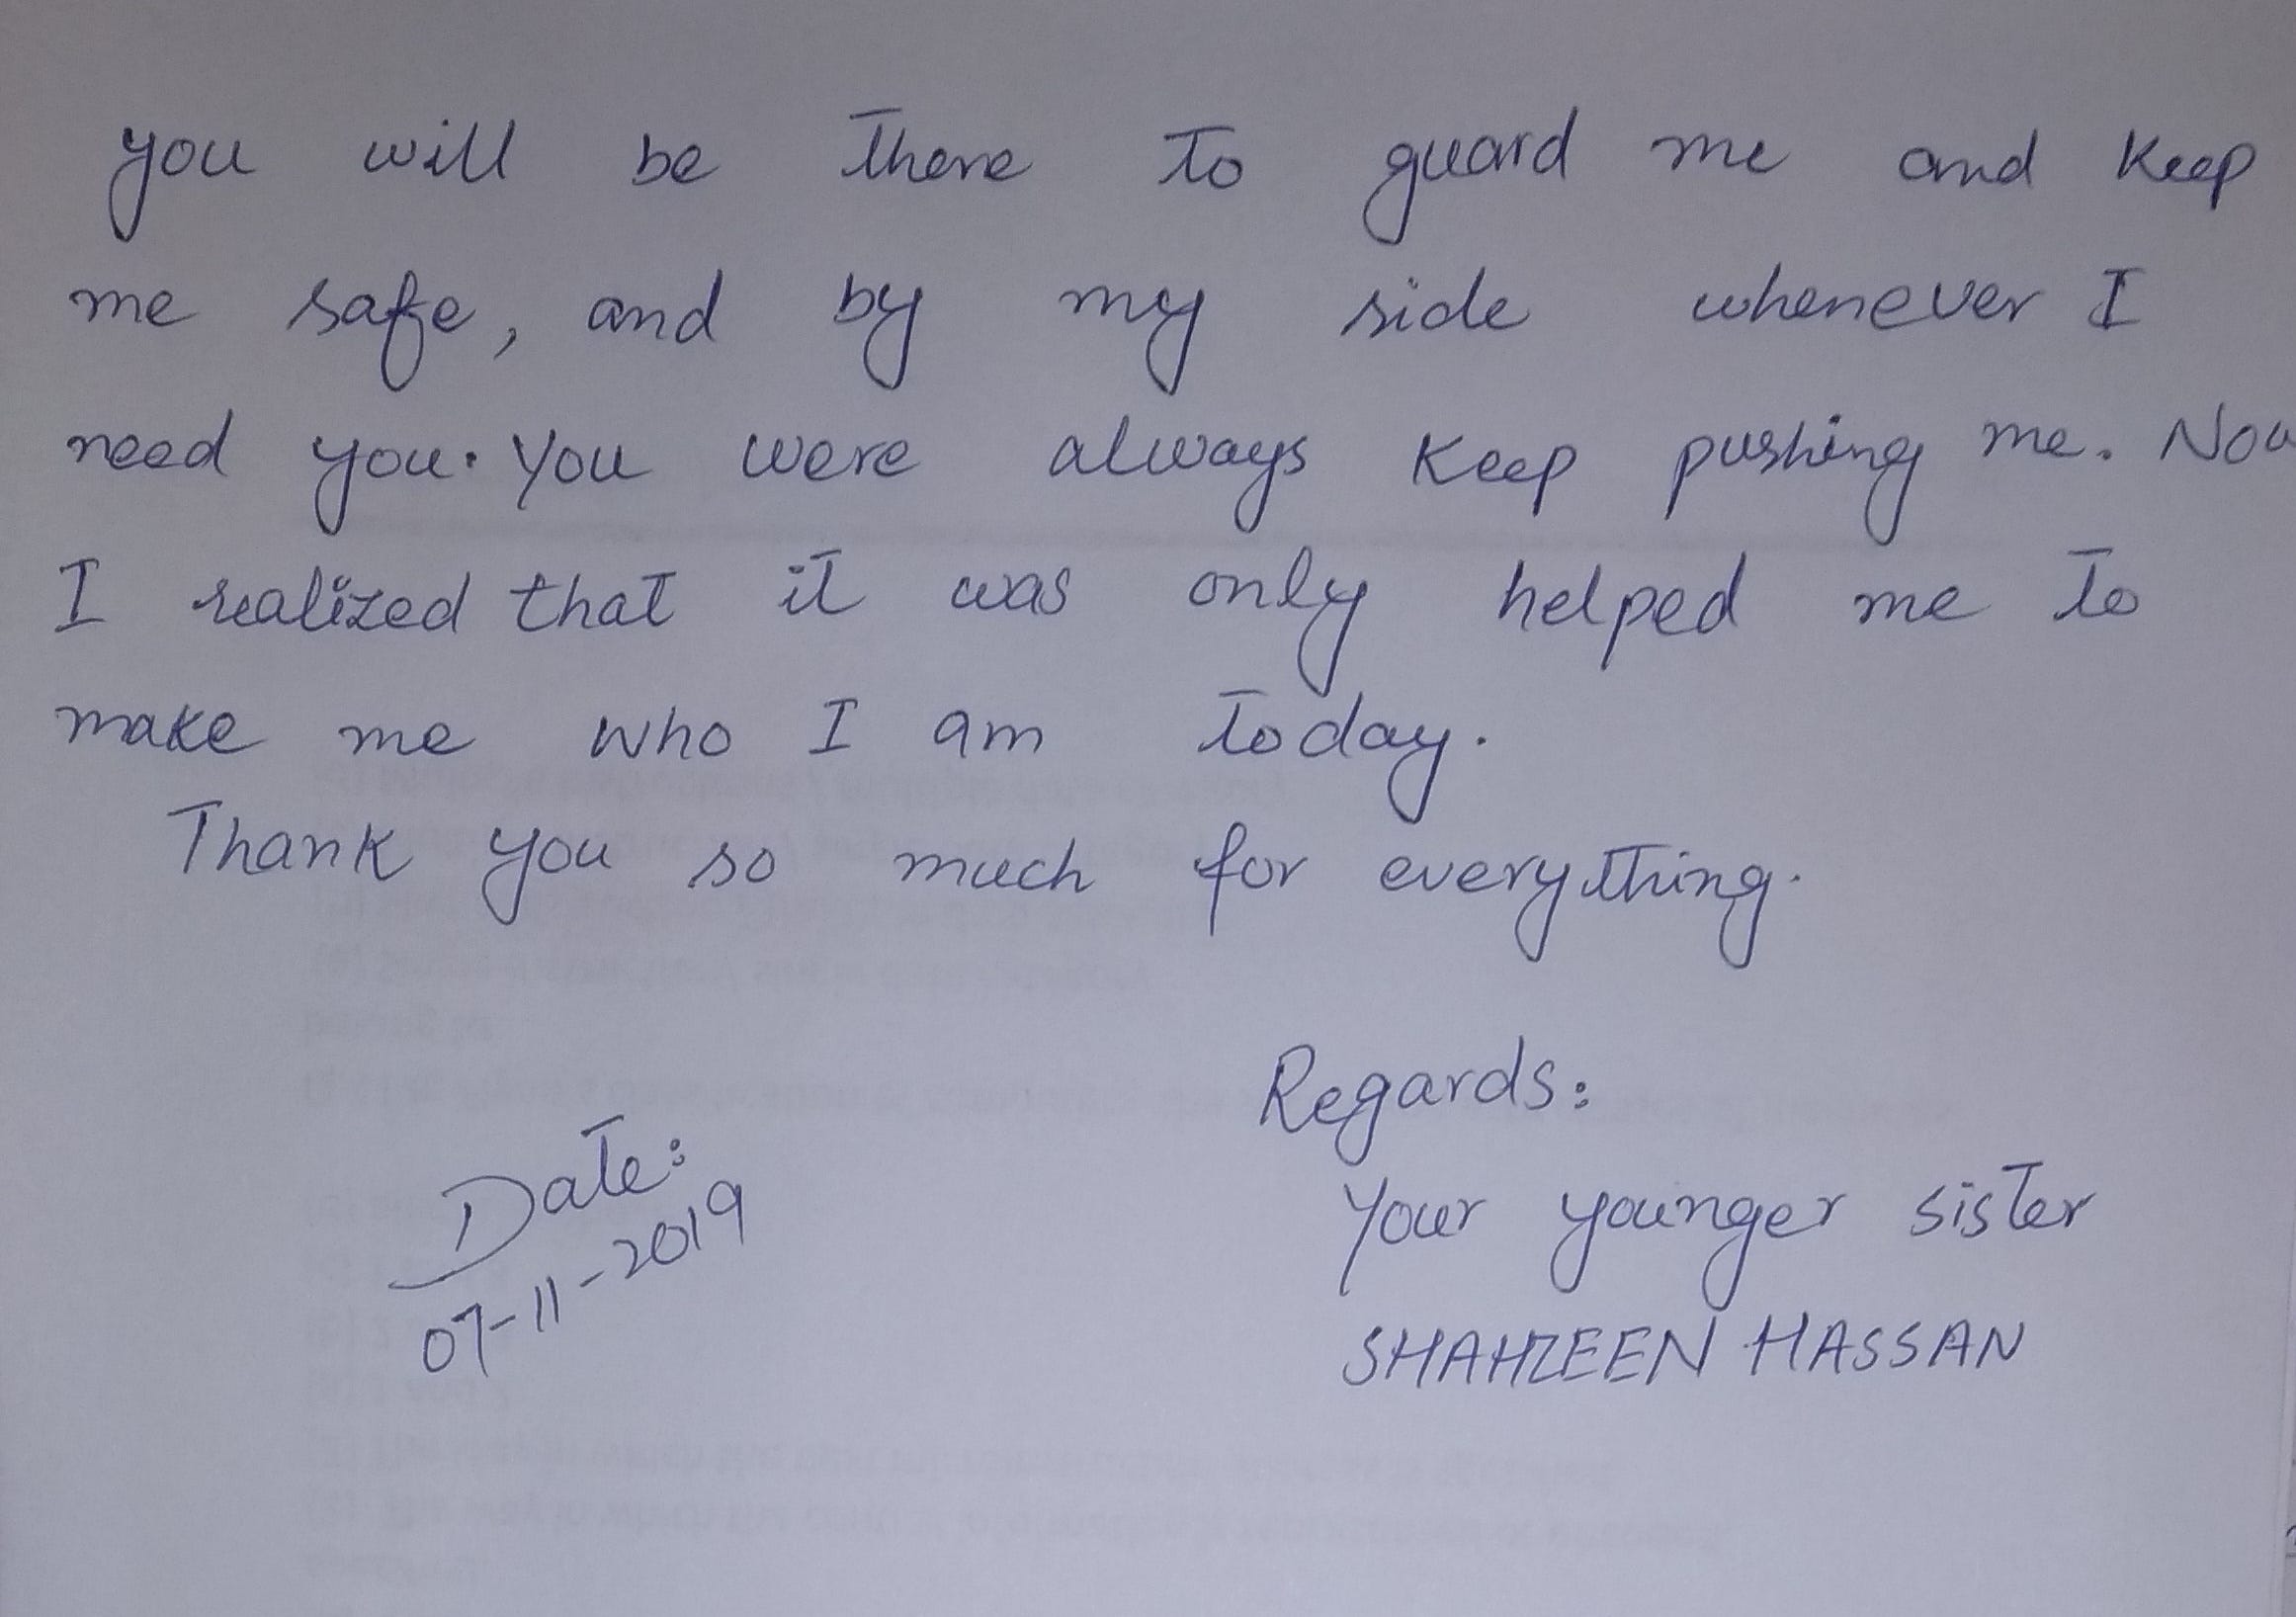 you will be there to guard me and keep
me safe, and by my side whenever I
need you. You were always keep pushing me. Now
I realized that it was only helped me to
make me who I am today.
Thank you so much for everything.
Regards:
Date:
07-11-2019
Your younger sister
SHAHZEEN HASSAN